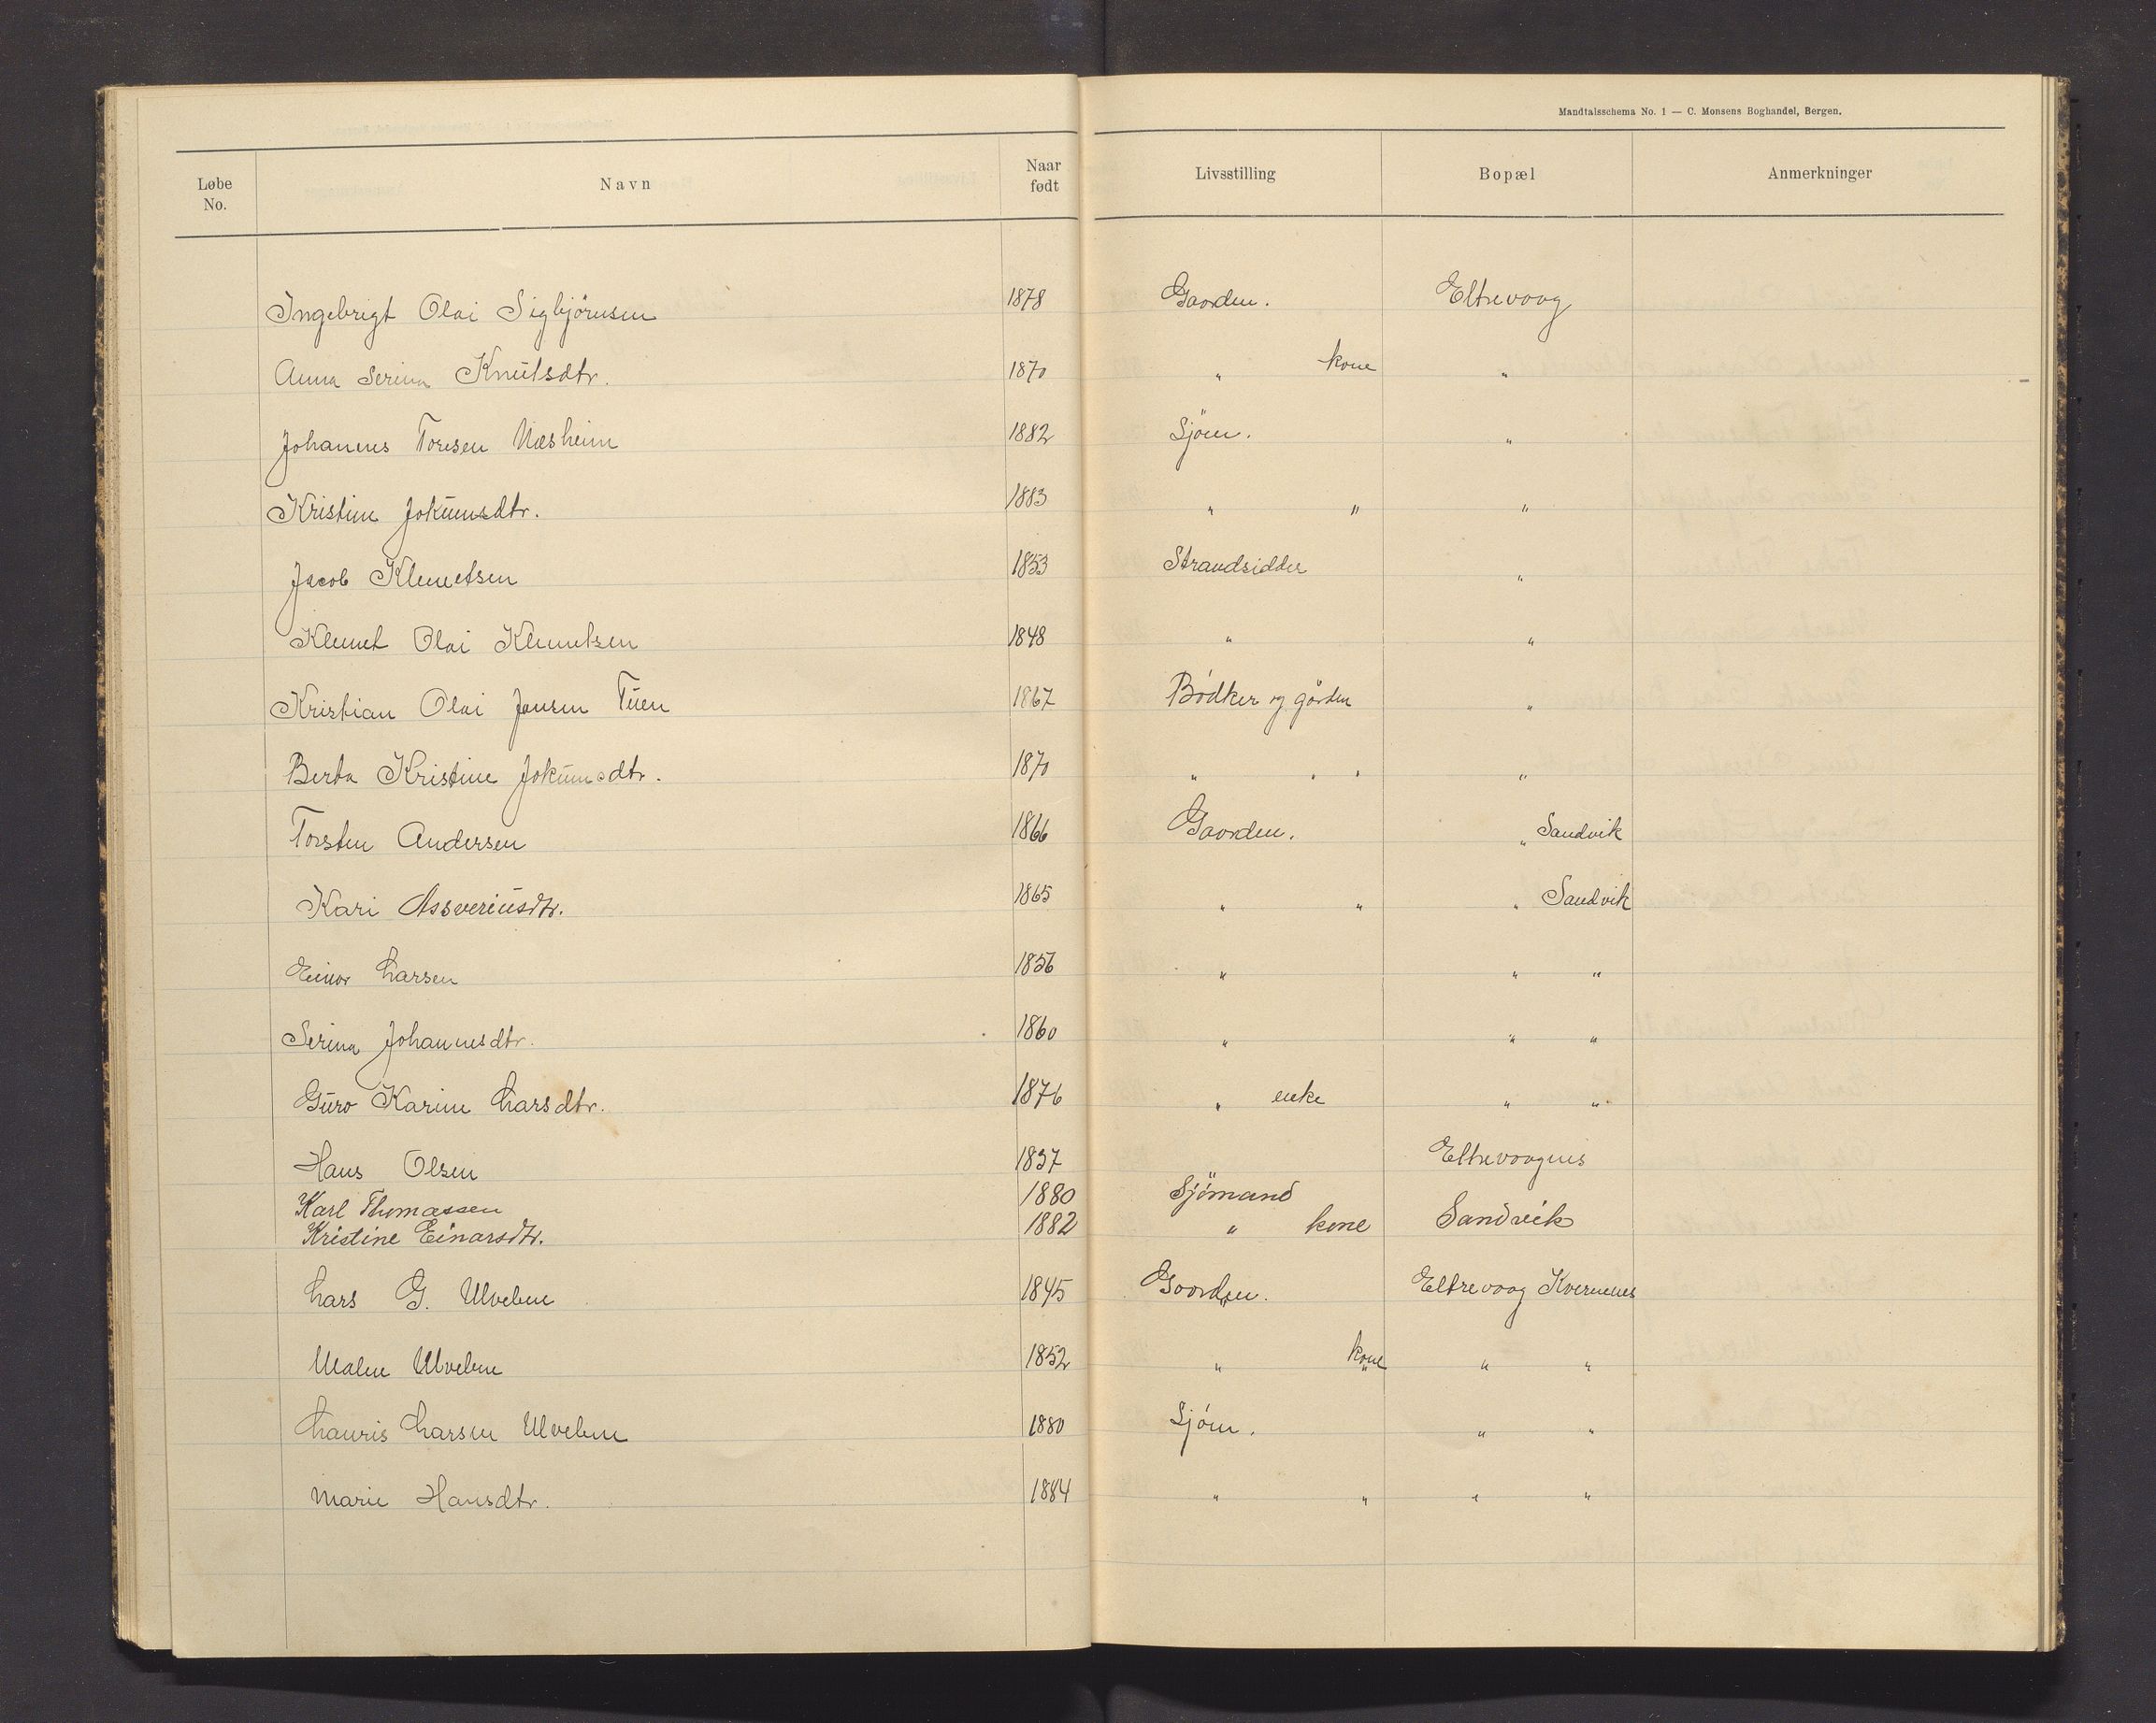 Mandtalsschema No. 1 — C. Monsens Boghandel, Bergen.
Løbe No. Navn Naar født Livsstilling Bopæl Anmerkninger
Ingebrigt Olai Sigbjörnsen 1878 Gaardm. Eltrevaag
Anna Serina Knutsdtr. 1870 " kone "
Johannes Toresen Næsheim 1882 Sjöm. "
Kristine Jokumsdtr. 1883 " " "
Jacob Klemetsen 1853 Strandsidder "
Klemet Olai Klemetsen 1848 " "
Kristian Olai Jensen Tuen 1867 Bödker og gårdm "
Berta Kristine Jokumsdtr. 1870 " " " "
Torsten Andersen 1866 Gaardm. " Sandvik
Kari Assveriusdtr. 1865 " " " Sandvik
Einar Larsen 1856 " " "
Serina Johannesdtr. 1860 " " "
Guro Karine Larsdtr. 1876 " enke " "
Hans Olsen 1837 Eltrevaagnes
Karl Thomassen 1880 Sjömand
Kristine Einarsdtr. 1882 " kone Sandvik
Lars G. Ulveben 1845 Gaardm. Eltrevaag Kvernenes
Malene Ulveben 1852 " kone " "
Lauris Larsen Ulveben 1880 Sjöm. " "
Marie Hansdtr. 1884 " " " "